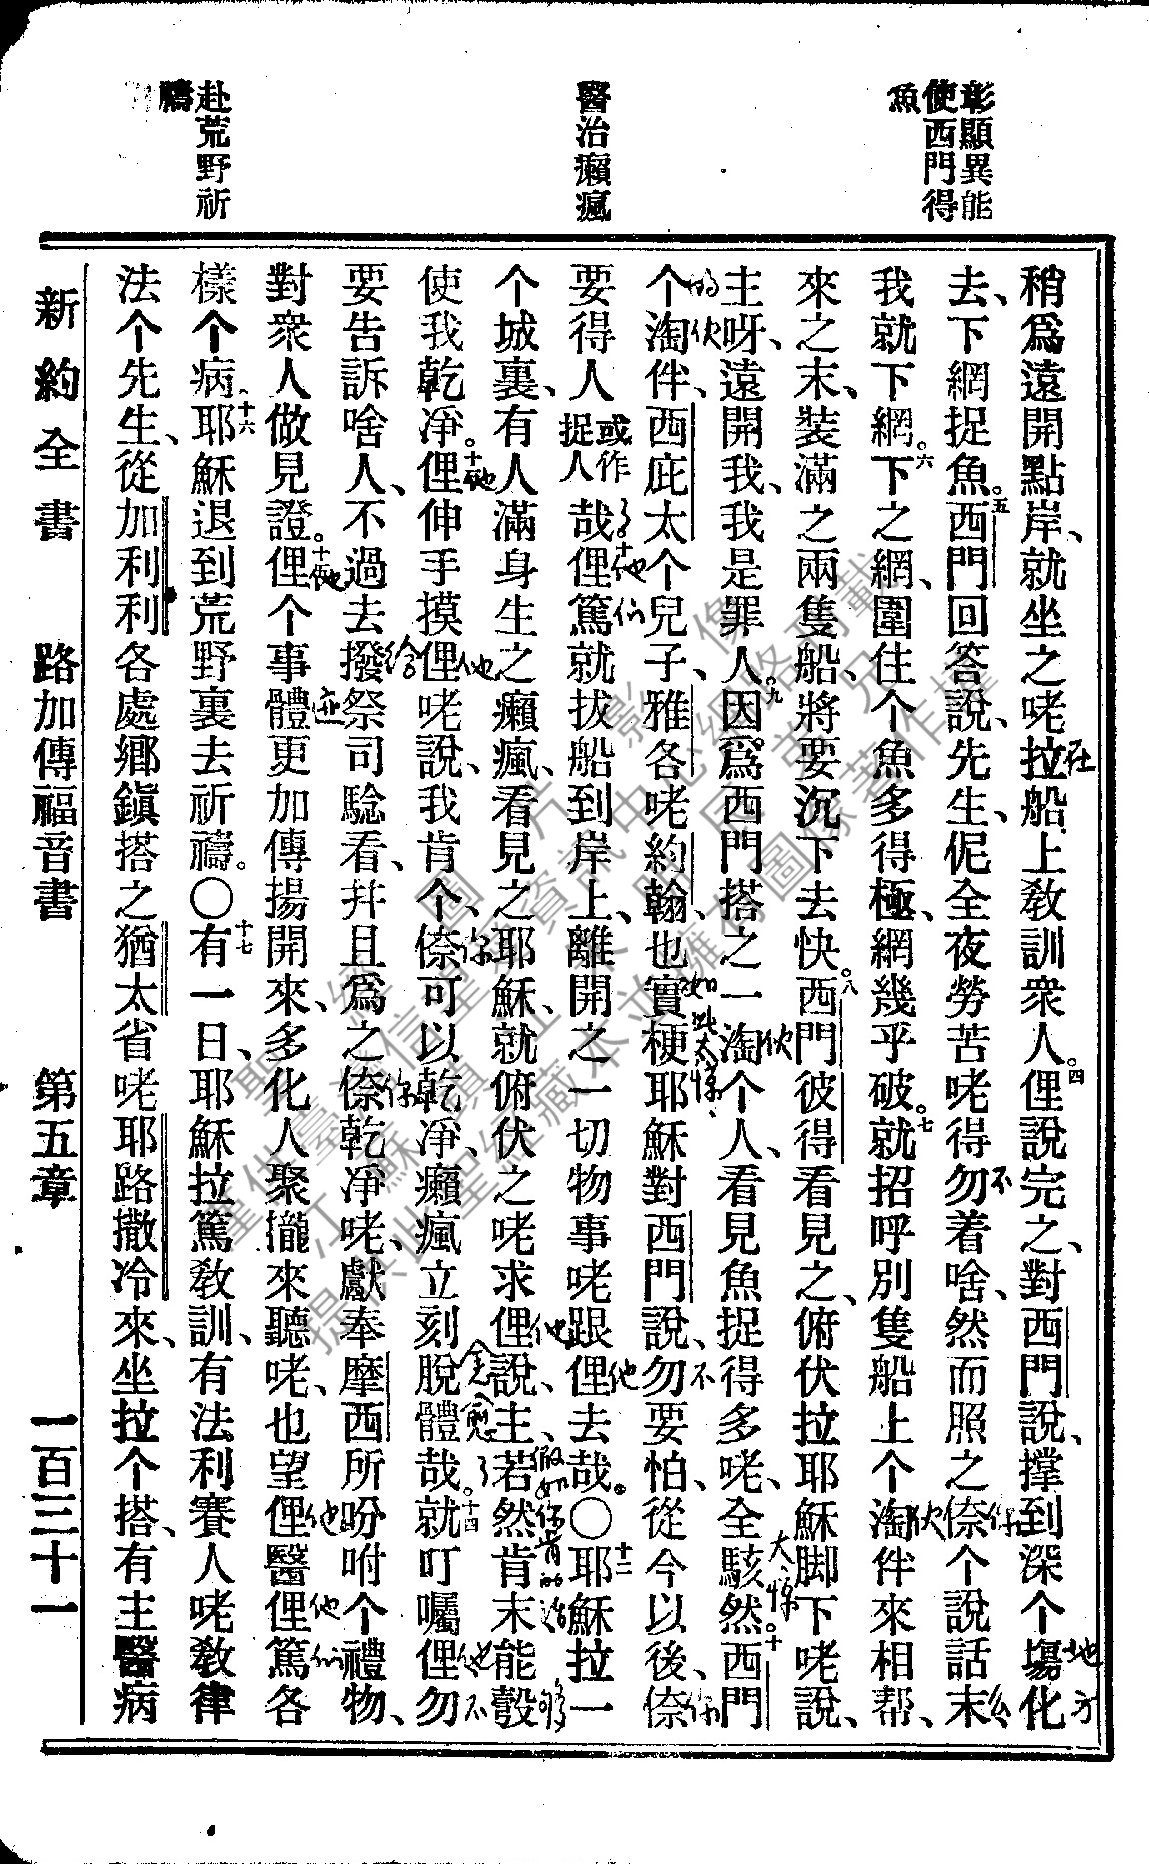 彰顯異能
使西門得
魚
醫治癩瘋
赴荒野祈
禱
稍爲遠開點岸、就坐之咾拉船上教訓衆人。四俚說完之、對西門說、撑到深个塲化
去、下網捉魚。五西門回答說、先生、伲全夜勞苦咾得勿着啥、然而照之倷个說話末
我就下網。六下之網、圍住个魚多得極、網幾乎破。七就招呼別隻船上个淘伴來相帮、
來之末、裝滿之兩隻船、將要沉下去快。八西門彼得看見之、俯伏拉耶穌脚下咾說、
主呀、遠開我、我是罪人。九因爲西門搭之一淘个人、看見魚捉得多咾、全駭然。十西門
个淘伴、西庇太个兒子、雅各咾約翰、也實梗耶穌對西門說、勿要怕、從今以後、倷
要得人或作捉人哉。十一俚篤就拔船到岸上、離開之一切物事咾跟俚去哉。〇十二耶穌拉一
个城裏、有人滿身生之癩瘋、看見之耶穌、就俯伏之咾求俚說、主、若然肯末能彀
使我乾凈。十三俚伸手摸俚咾說、我肯个、倷可以乾凈、癩瘋立刻脫體哉。十四就叮囑俚勿
要告訴啥人、不過去撥祭司騐看、幷且爲之倷乾凈咾、獻奉摩西所吩咐个禮物、
對衆人做見證。十五俚个事體更加傳揚開來、多化人聚攏來聽咾、也望俚醫俚篤各
樣个病、十六耶穌退到荒野裏去祈禱。〇十七有一日、耶穌拉篤教訓、有法利賽人咾教律
法个先生、從加利利各處鄉鎭搭之猶太省咾耶路撒冷來、坐拉个搭、有主醫病
新約全書 路加傳福音書 第五章 一百三十一